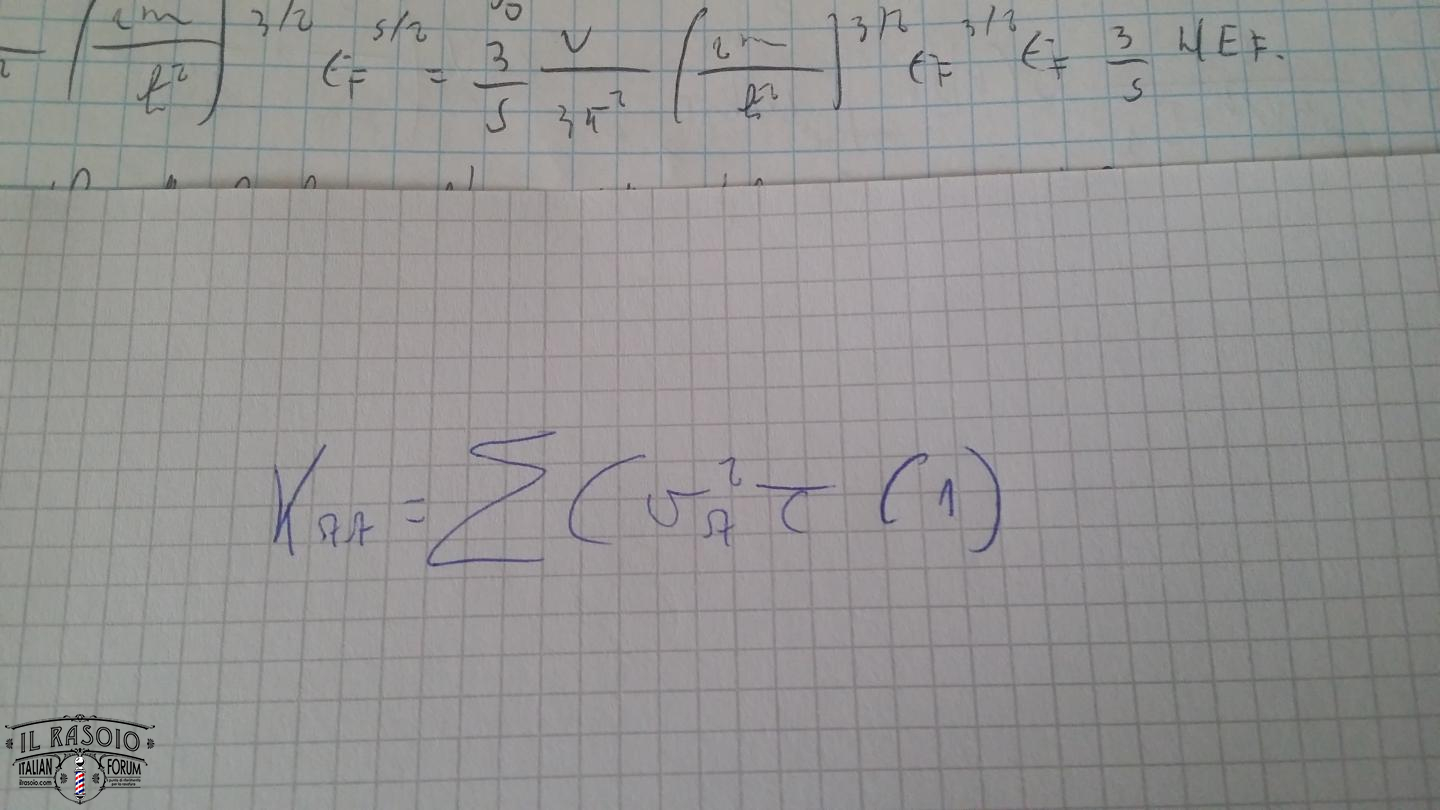 (2m/ħ²)^3/2 E_F^5/2 = 3/5 V/3π² [2m/ħ²]^3/2 E_F^3/2 E_F 3/5 N E F.
K = Σ ( v² τ (1)
IL RASOIO
ITALIAN FORUM
ilrasoio.com